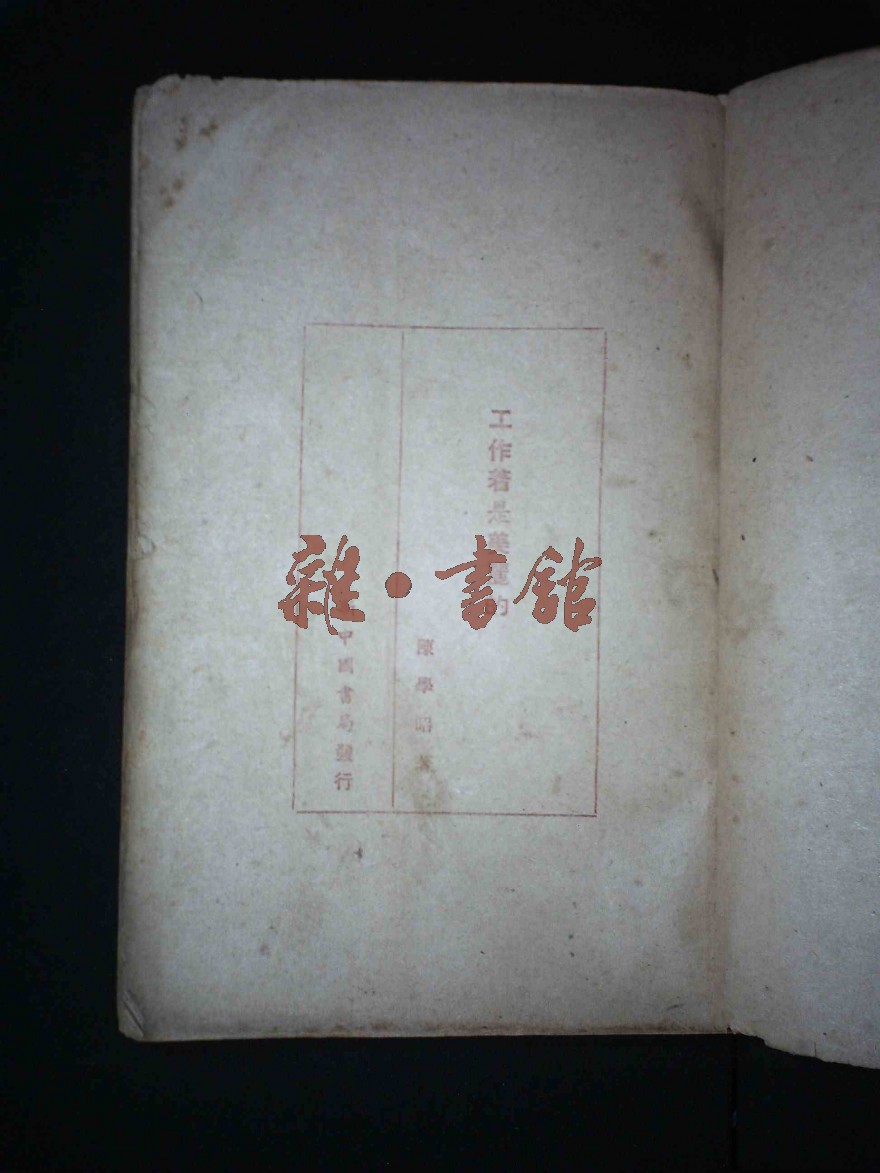 工作着是美麗的
陳學昭著
新中國書局發行
雜·書館